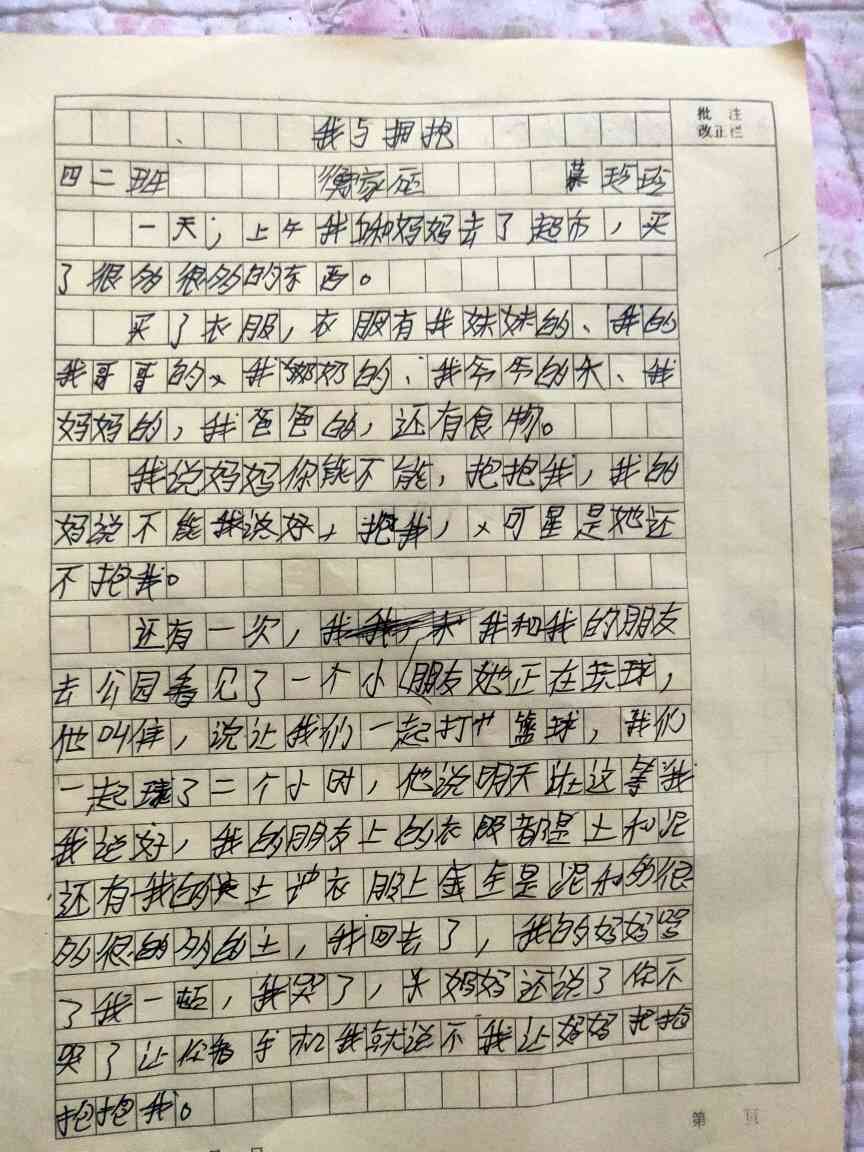 我与拥抱
批 注
改正栏
四二班 家 玲玲
一天，上午我和妈妈去了超市，买
了很多很多的东西。
买了衣服，衣服有我妹妹的、我的
我哥哥的、我奶奶的、我爷爷的、我
妈妈的，我爸爸的，还有食物。
我说妈妈你能不能，抱抱我，我的
妈说不能我说好，抱我，可是她还
不抱我。
还有一次，我和我的朋友
去公园看见了一个小朋友她正在球，
他叫住，说让我们一起打篮球，我们
一起球了二个小时，他说明天在这等我
我说好，我的朋友上的衣服都是土和泥
还有我的土地衣服上全是泥和多很
多很多的土，我回去了，我的妈妈骂
了我一顿，我哭了，妈妈还说了你不
哭了让你看手机我就说不我让妈妈抱抱
抱抱我。
第 页